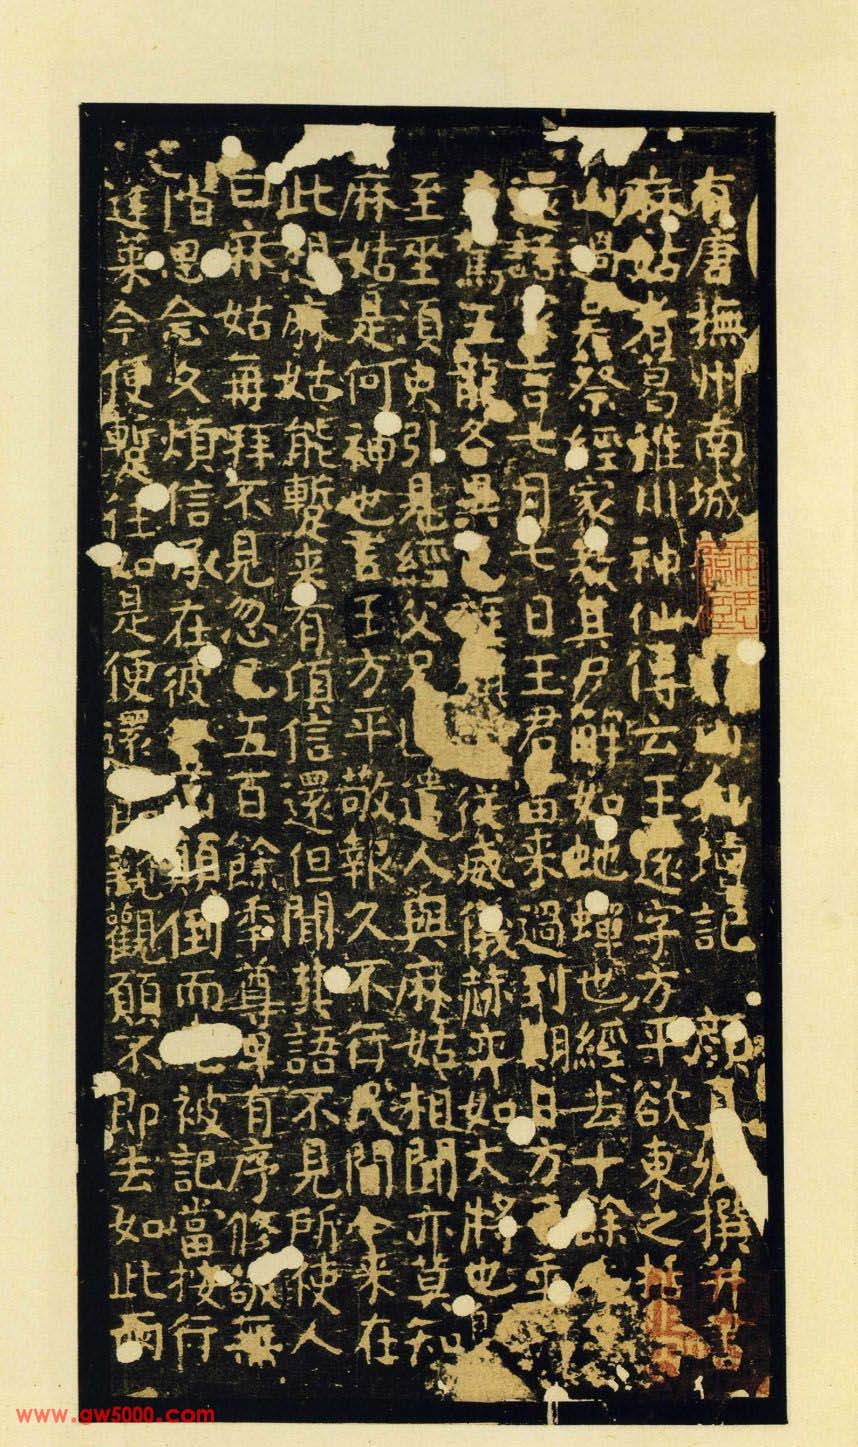 有唐撫州南城山仙壇記 顏卿撰并書
麻姑者葛稚川神仙傳云王遠字方平欲東之括
山過吳蔡經家教其尸解如虵蟬也經去十餘
還語家言七月七日王君當来過到期日方平
駕五龍各異色旌從威儀赫弈如大將也
至坐須臾引見經父兄遣人與麻姑相聞亦莫知
麻姑是何神也言王方平敬報久不行民間今来在
此想麻姑能蹔来有頃信還但聞其語不見所使人
曰麻姑再拜不見忽已五百餘年尊卑有序修敬無
階思念久煩信承在彼顛倒而先被記當按行
蓬萊今便蹔往如是便還即親觀願不即去如此兩
www.gw5000.com